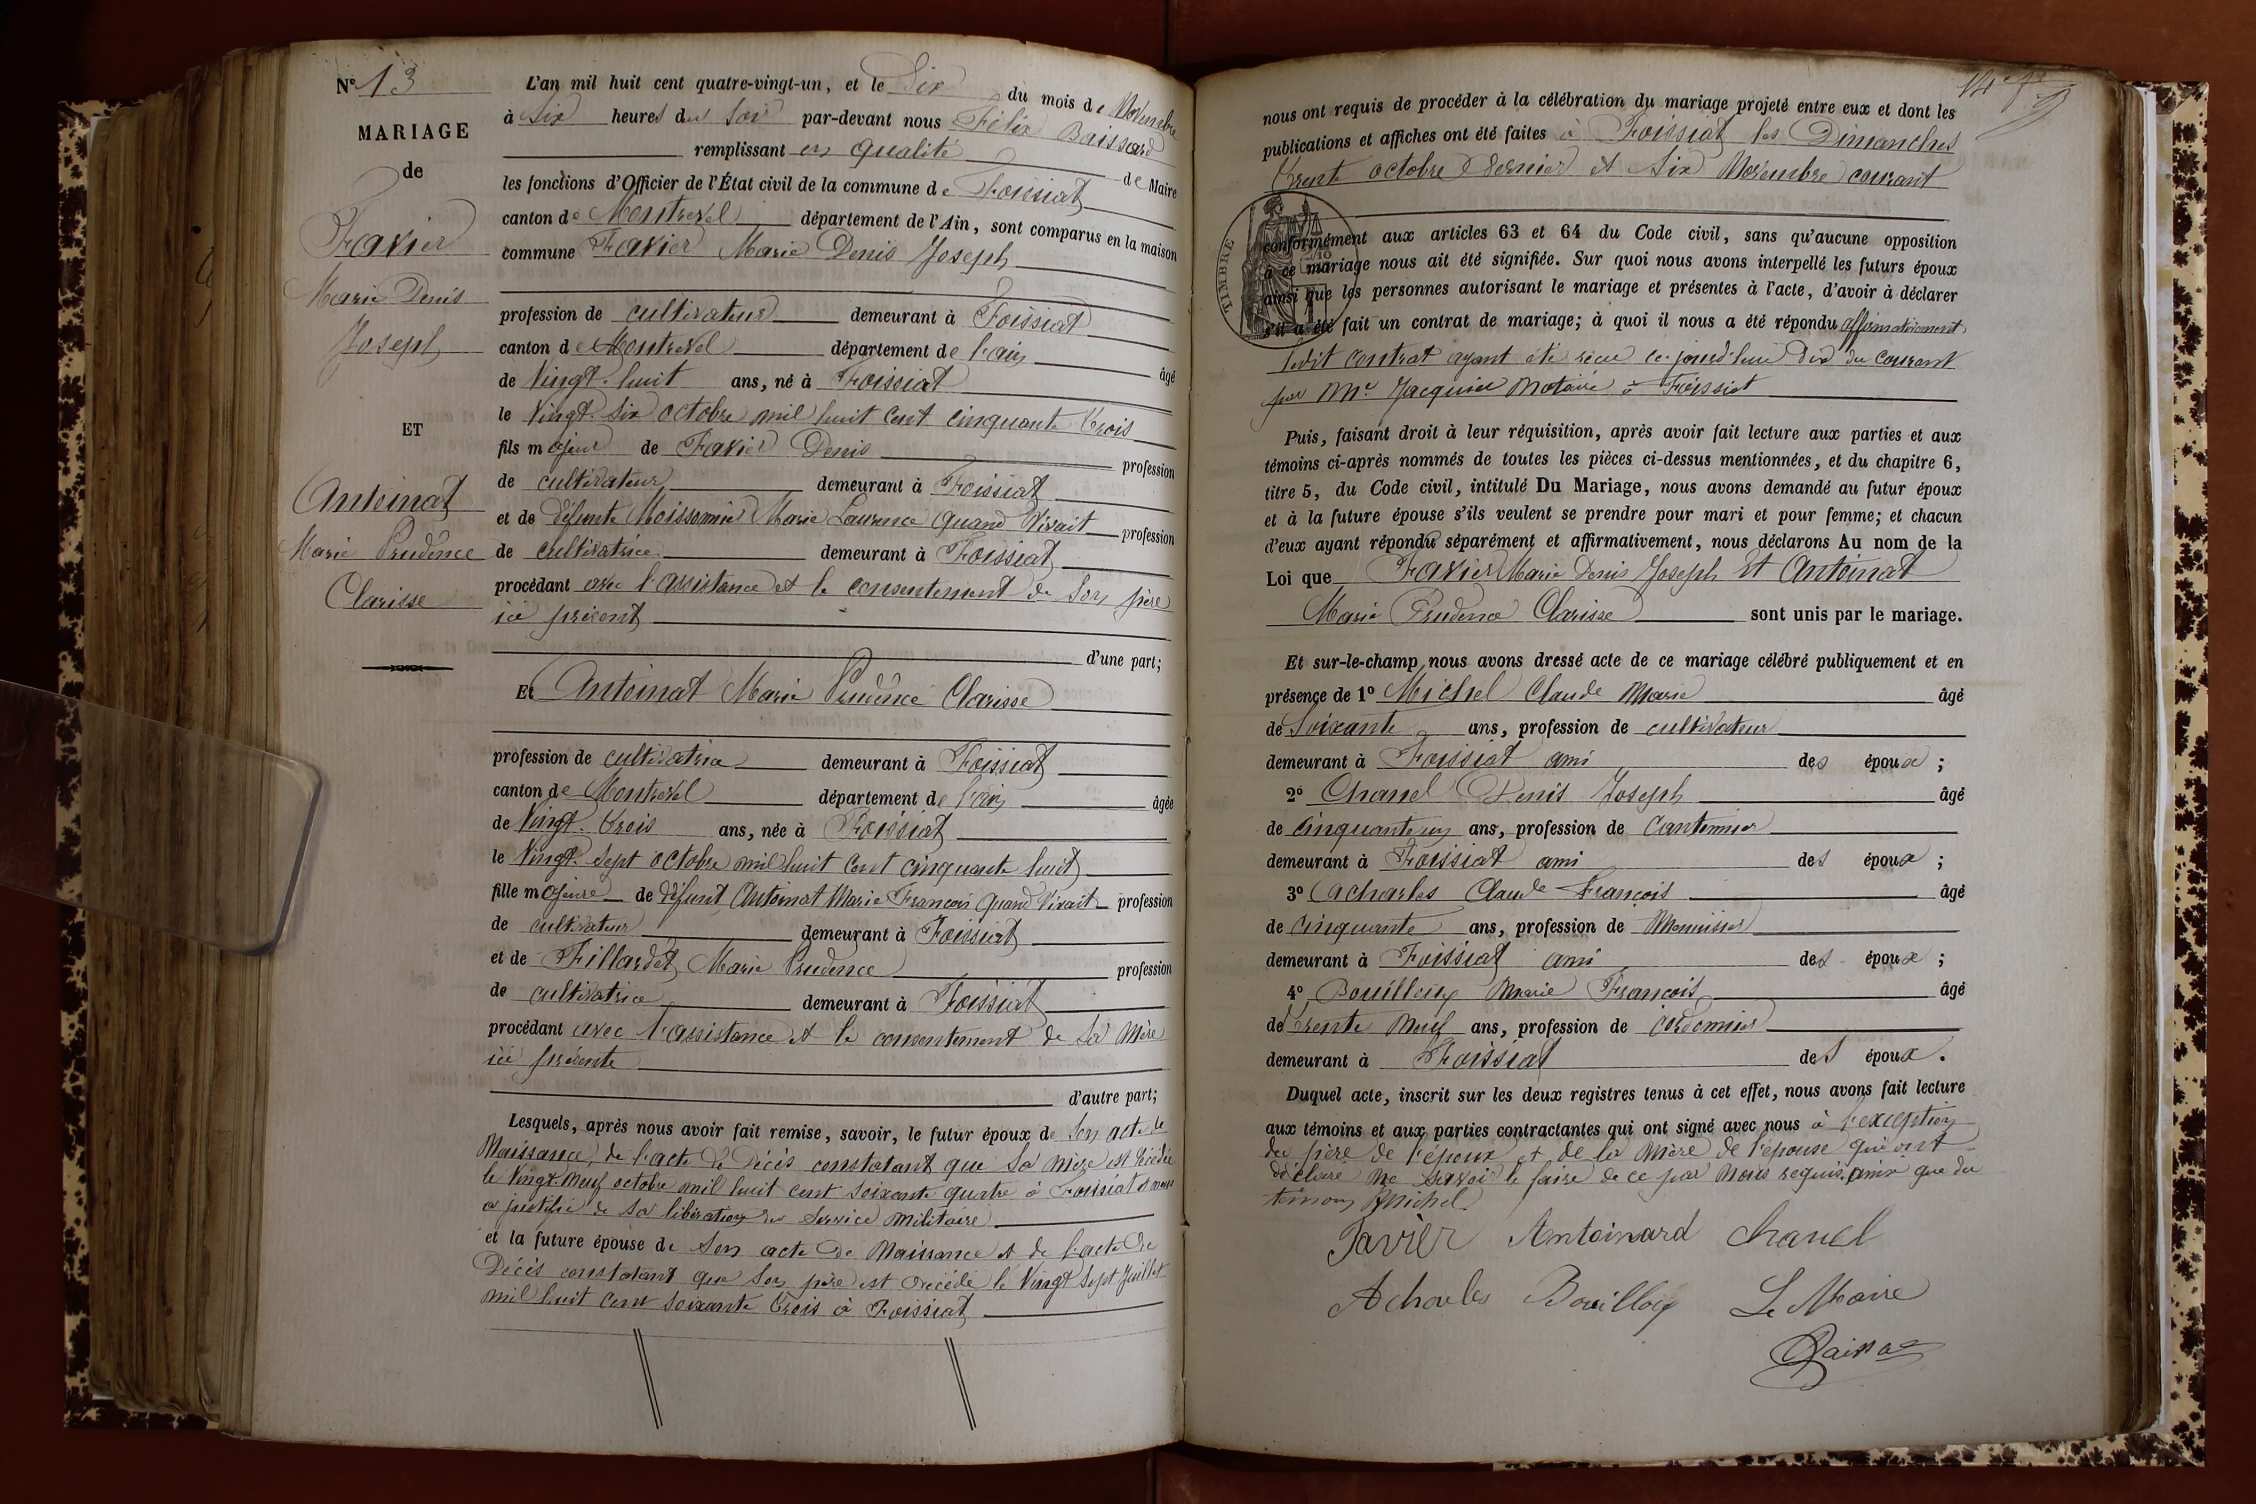 N° 13
MARIAGE
de
Favier
Marie Denis
Joseph
ET
Antoinat
Marie Prudence
Clarisse
L'an mil huit cent quatre-vingt-un, et le Dix du mois de Novembre
à Six heures du Soir par-devant nous Félix Baissard
remplissant en qualité de Maire
les fonctions d'Officier de l'État civil de la commune de Foissiat
canton de Montrevel département de l'Ain, sont comparus en la maison
commune Favier Marie Denis Joseph
profession de cultivateur demeurant à Foissiat
canton de Montrevel département de l'ain âgé
de Vingt-huit ans, né à Foissiat
le Vingt-Six octobre mil huit cent cinquante trois
fils majeur de Favier Denis profession
de cultivateur demeurant à Foissiat
et de défunte Moissonnier Marie Laurence quand Vivait profession
de cultivatrice demeurant à Foissiat
procédant avec l'assistance et le consentement de Son père
ici présent
d'une part;
Et Antoinat Marie Prudence Clarisse
profession de cultivatrice demeurant à Foissiat
canton de Montrevel département de l'ain âgée
de Vingt-trois ans, née à Foissiat
le Vingt-Sept octobre mil huit cent cinquante huit
fille majeure de défunt Antoinat Marie François quand Vivait profession
de cultivateur demeurant à Foissiat
et de Fillardet Marie Prudence profession
de cultivatrice demeurant à Foissiat
procédant avec l'assistance et le consentement de Sa Mère
ici présente
d'autre part;
Lesquels, après nous avoir fait remise, savoir, le futur époux de Son acte de
Naissance, de l'acte de Décès constatant que Sa mère est décédée
le Vingt-Neuf octobre mil huit cent soixante quatre à Foissiat et nous
a justifié de Sa libération du Service Militaire
et la future épouse de Son acte de Naissance et de l'acte de
Décès constatant que Son père est décédé le Vingt Sept Juillet
mil huit cent soixante trois à Foissiat
nous ont requis de procéder à la célébration du mariage projeté entre eux et dont les
publications et affiches ont été faites à Foissiat les Dimanches
trente octobre Dernier et Six Novembre courant
TIMBRE
conformément aux articles 63 et 64 du Code civil, sans qu'aucune opposition
à ce mariage nous ait été signifiée. Sur quoi nous avons interpellé les futurs époux
ainsi que les personnes autorisant le mariage et présentes à l'acte, d'avoir à déclarer
s'il a été fait un contrat de mariage; à quoi il nous a été répondu affirmativement
ledit contrat ayant été reçu ce jourd'hui Dix du Courant
par Me Jacquier Notaire à Foissiat
Puis, faisant droit à leur réquisition, après avoir fait lecture aux parties et aux
témoins ci-après nommés de toutes les pièces ci-dessus mentionnées, et du chapitre 6,
titre 5, du Code civil, intitulé Du Mariage, nous avons demandé au futur époux
et à la future épouse s'ils veulent se prendre pour mari et pour femme; et chacun
d'eux ayant répondu séparément et affirmativement, nous déclarons Au nom de la
Loi que Favier Marie Denis Joseph Et Antoinat
Marie Prudence Clarisse sont unis par le mariage.
Et sur-le-champ nous avons dressé acte de ce mariage célébré publiquement et en
présence de 1° Michel Claude Marie âgé
de Soixante ans, profession de cultivateur
demeurant à Foissiat ami des époux;
2° Chanel Denis Joseph âgé
de cinquante un ans, profession de Cantonnier
demeurant à Foissiat ami des époux;
3° Acharles Claude François âgé
de Cinquante ans, profession de Menuisier
demeurant à Foissiat ami des époux;
4° Bouilloux Marie François âgé
de trente Neuf ans, profession de cordonnier
demeurant à Foissiat des époux.
Duquel acte, inscrit sur les deux registres tenus à cet effet, nous avons fait lecture
aux témoins et aux parties contractantes qui ont signé avec nous à l'exception
du père de l'époux et de la Mère de l'épouse qui ont
déclaré Ne Savoir le faire de ce par Nous requis, ainsi que du
témoin Michel.
Favier Antoinard Chanel
Acharles Bouilloux Le Maire
Baissard